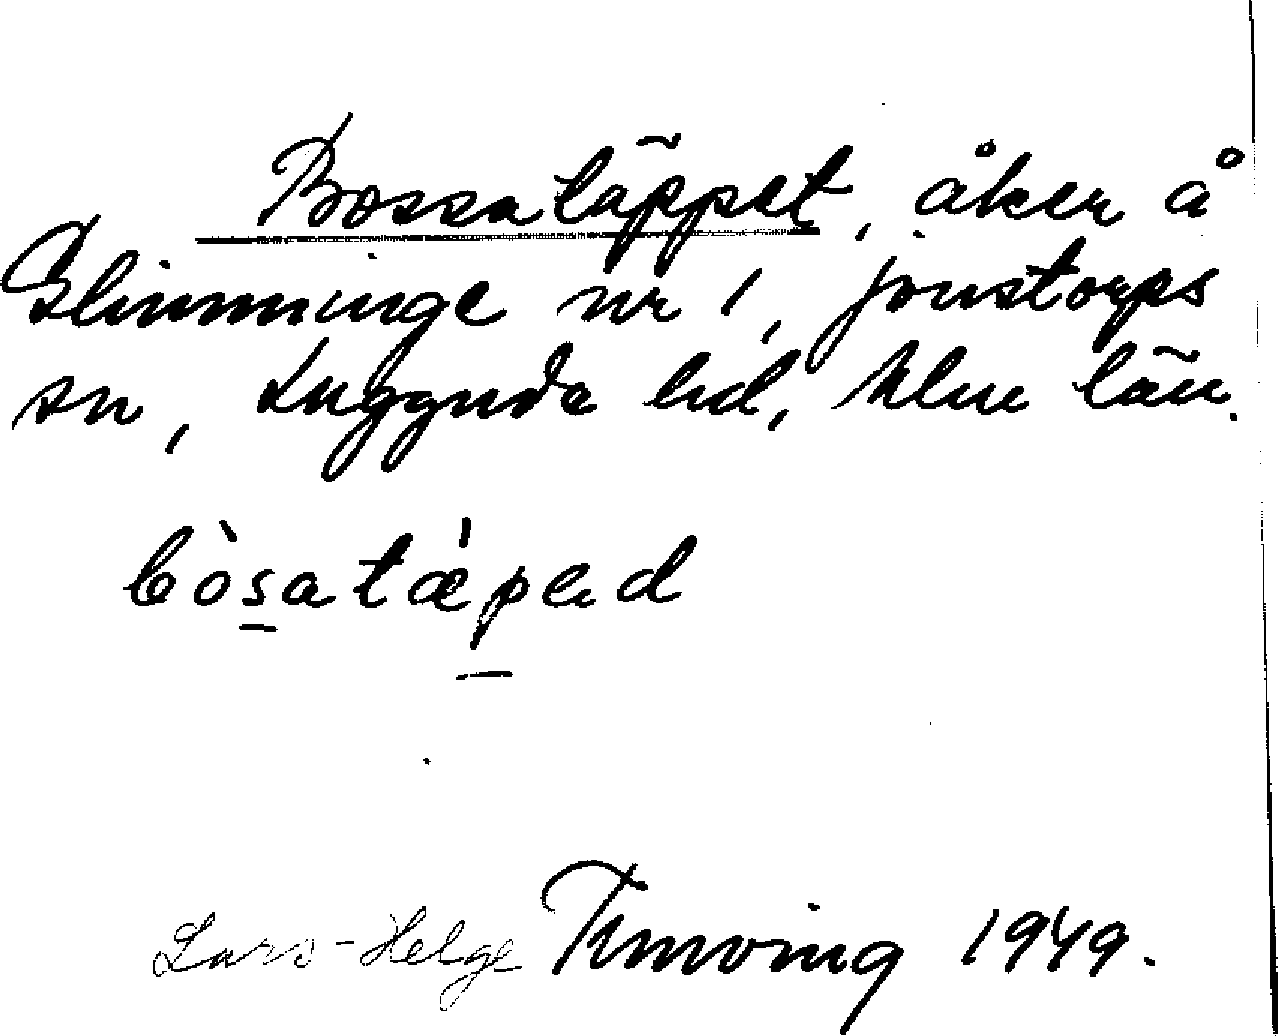 Bossatäppet, åker å
Glimminge nr 1, Jonstorps
sn, Luggude hd, Mlm län.
bòsatæ̀pəd
Lars-Helge 1949.